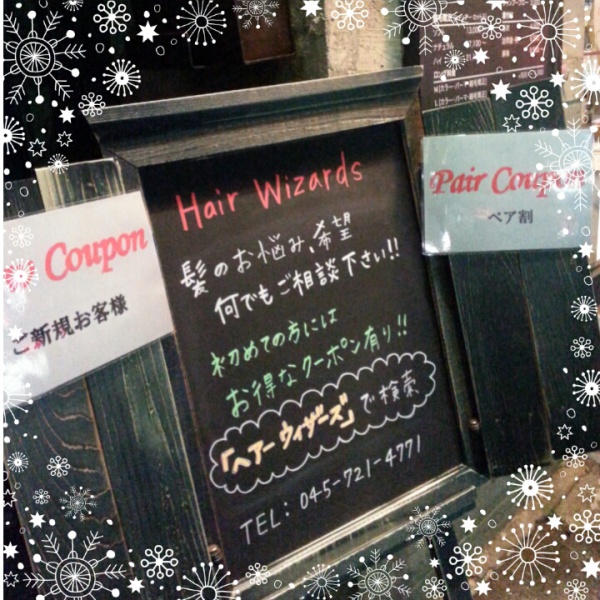 Hair Wizards
髪のお悩み、希望
何でもご相談下さい!!
初めての方には
お得なクーポン有り!!
「ヘアーウィザーズ」で検索
TEL: 045-721-4771
Coupon
ご新規お客様
Pair Coupon
ペア割